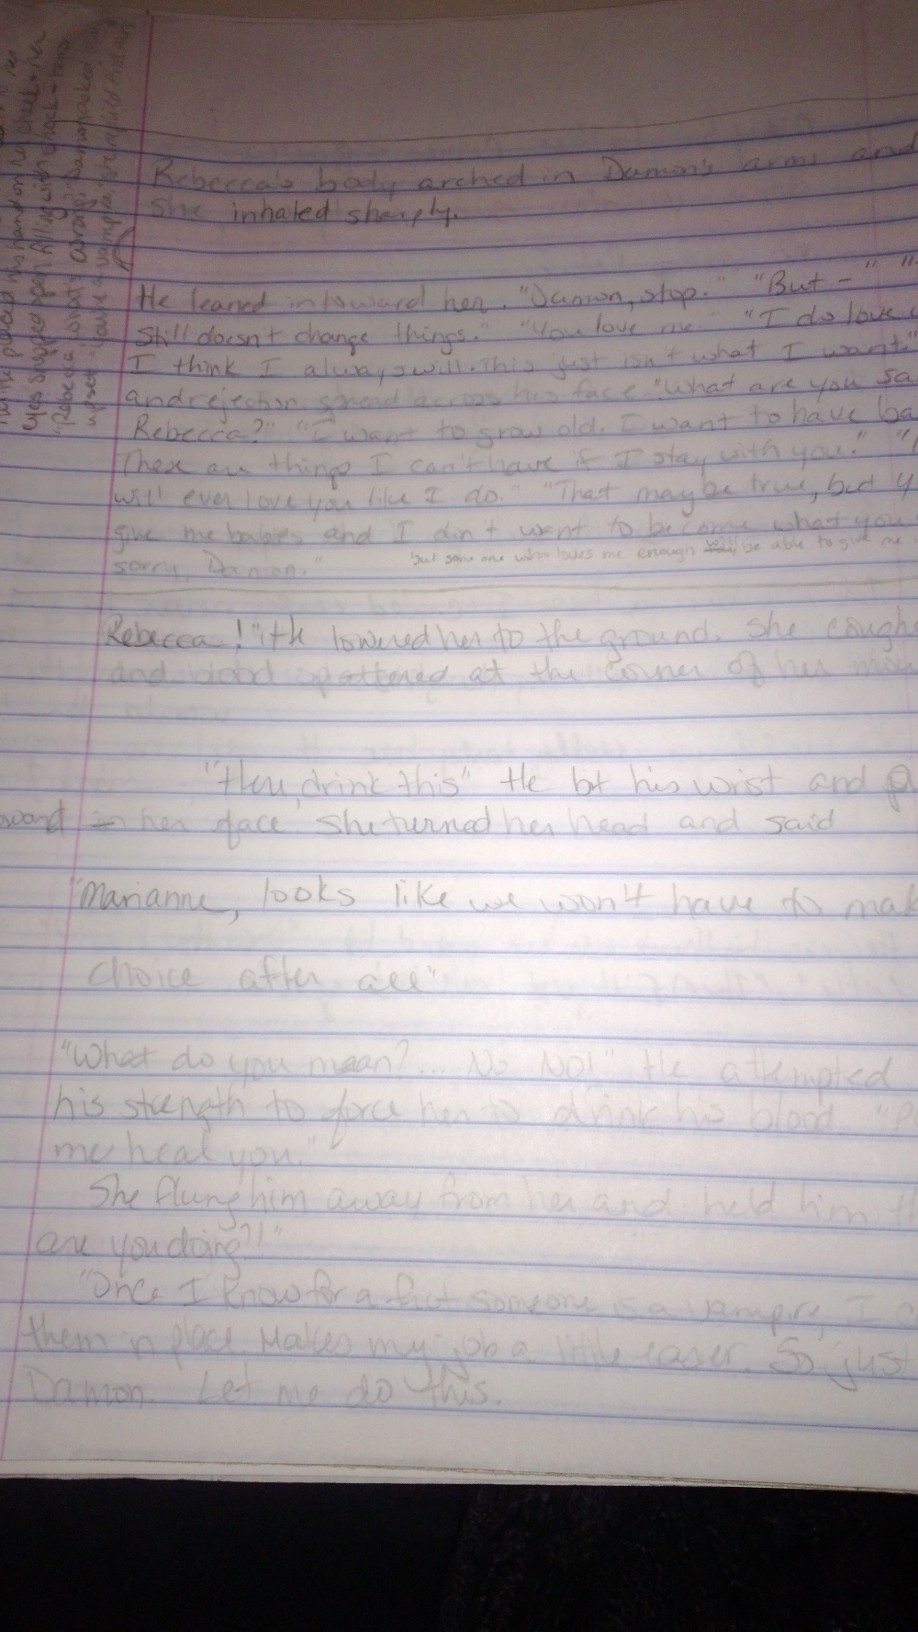 Rebecca's body arched in Damon's arms and
she inhaled sharply.
He leaned in toward her. "Damon, stop." "But -" "
Still doesn't change things." "You love me." "I do love
I think I always will. This just isn't what I want."
and rejection spread across his face "What are you sa
Rebecca?" "I want to grow old. I want to have ba
These are things I can't have if I stay with you."
will ever love you like I do." "That may be true, but y
give me babies and I don't want to become what you
but some one who loves me enough will be able to give me
sorry, Damon."
Rebecca!" He lowered her to the ground. She cough
and blood spattered at the corner of her mou
"Here, drink this" He bit his wrist and
oward in her face She turned her head and said
"Marianne, looks like we won't have to mak
choice after all"
"What do you mean?... No No!" He attempted
his strength to force her to drink his blood. "P
me heal you."
She flung him away from her and held him th
are you doing?!"
"Once I know for a fact someone is a vampire, I c
them in place. Makes my job a little easier. So just
Damon. Let me do this.
placed his hand on her cheek. Her
eyes snapped open filling with shock
"Rebecca, what's wrong?" Damon asked
upset "You're a vampire," she replied